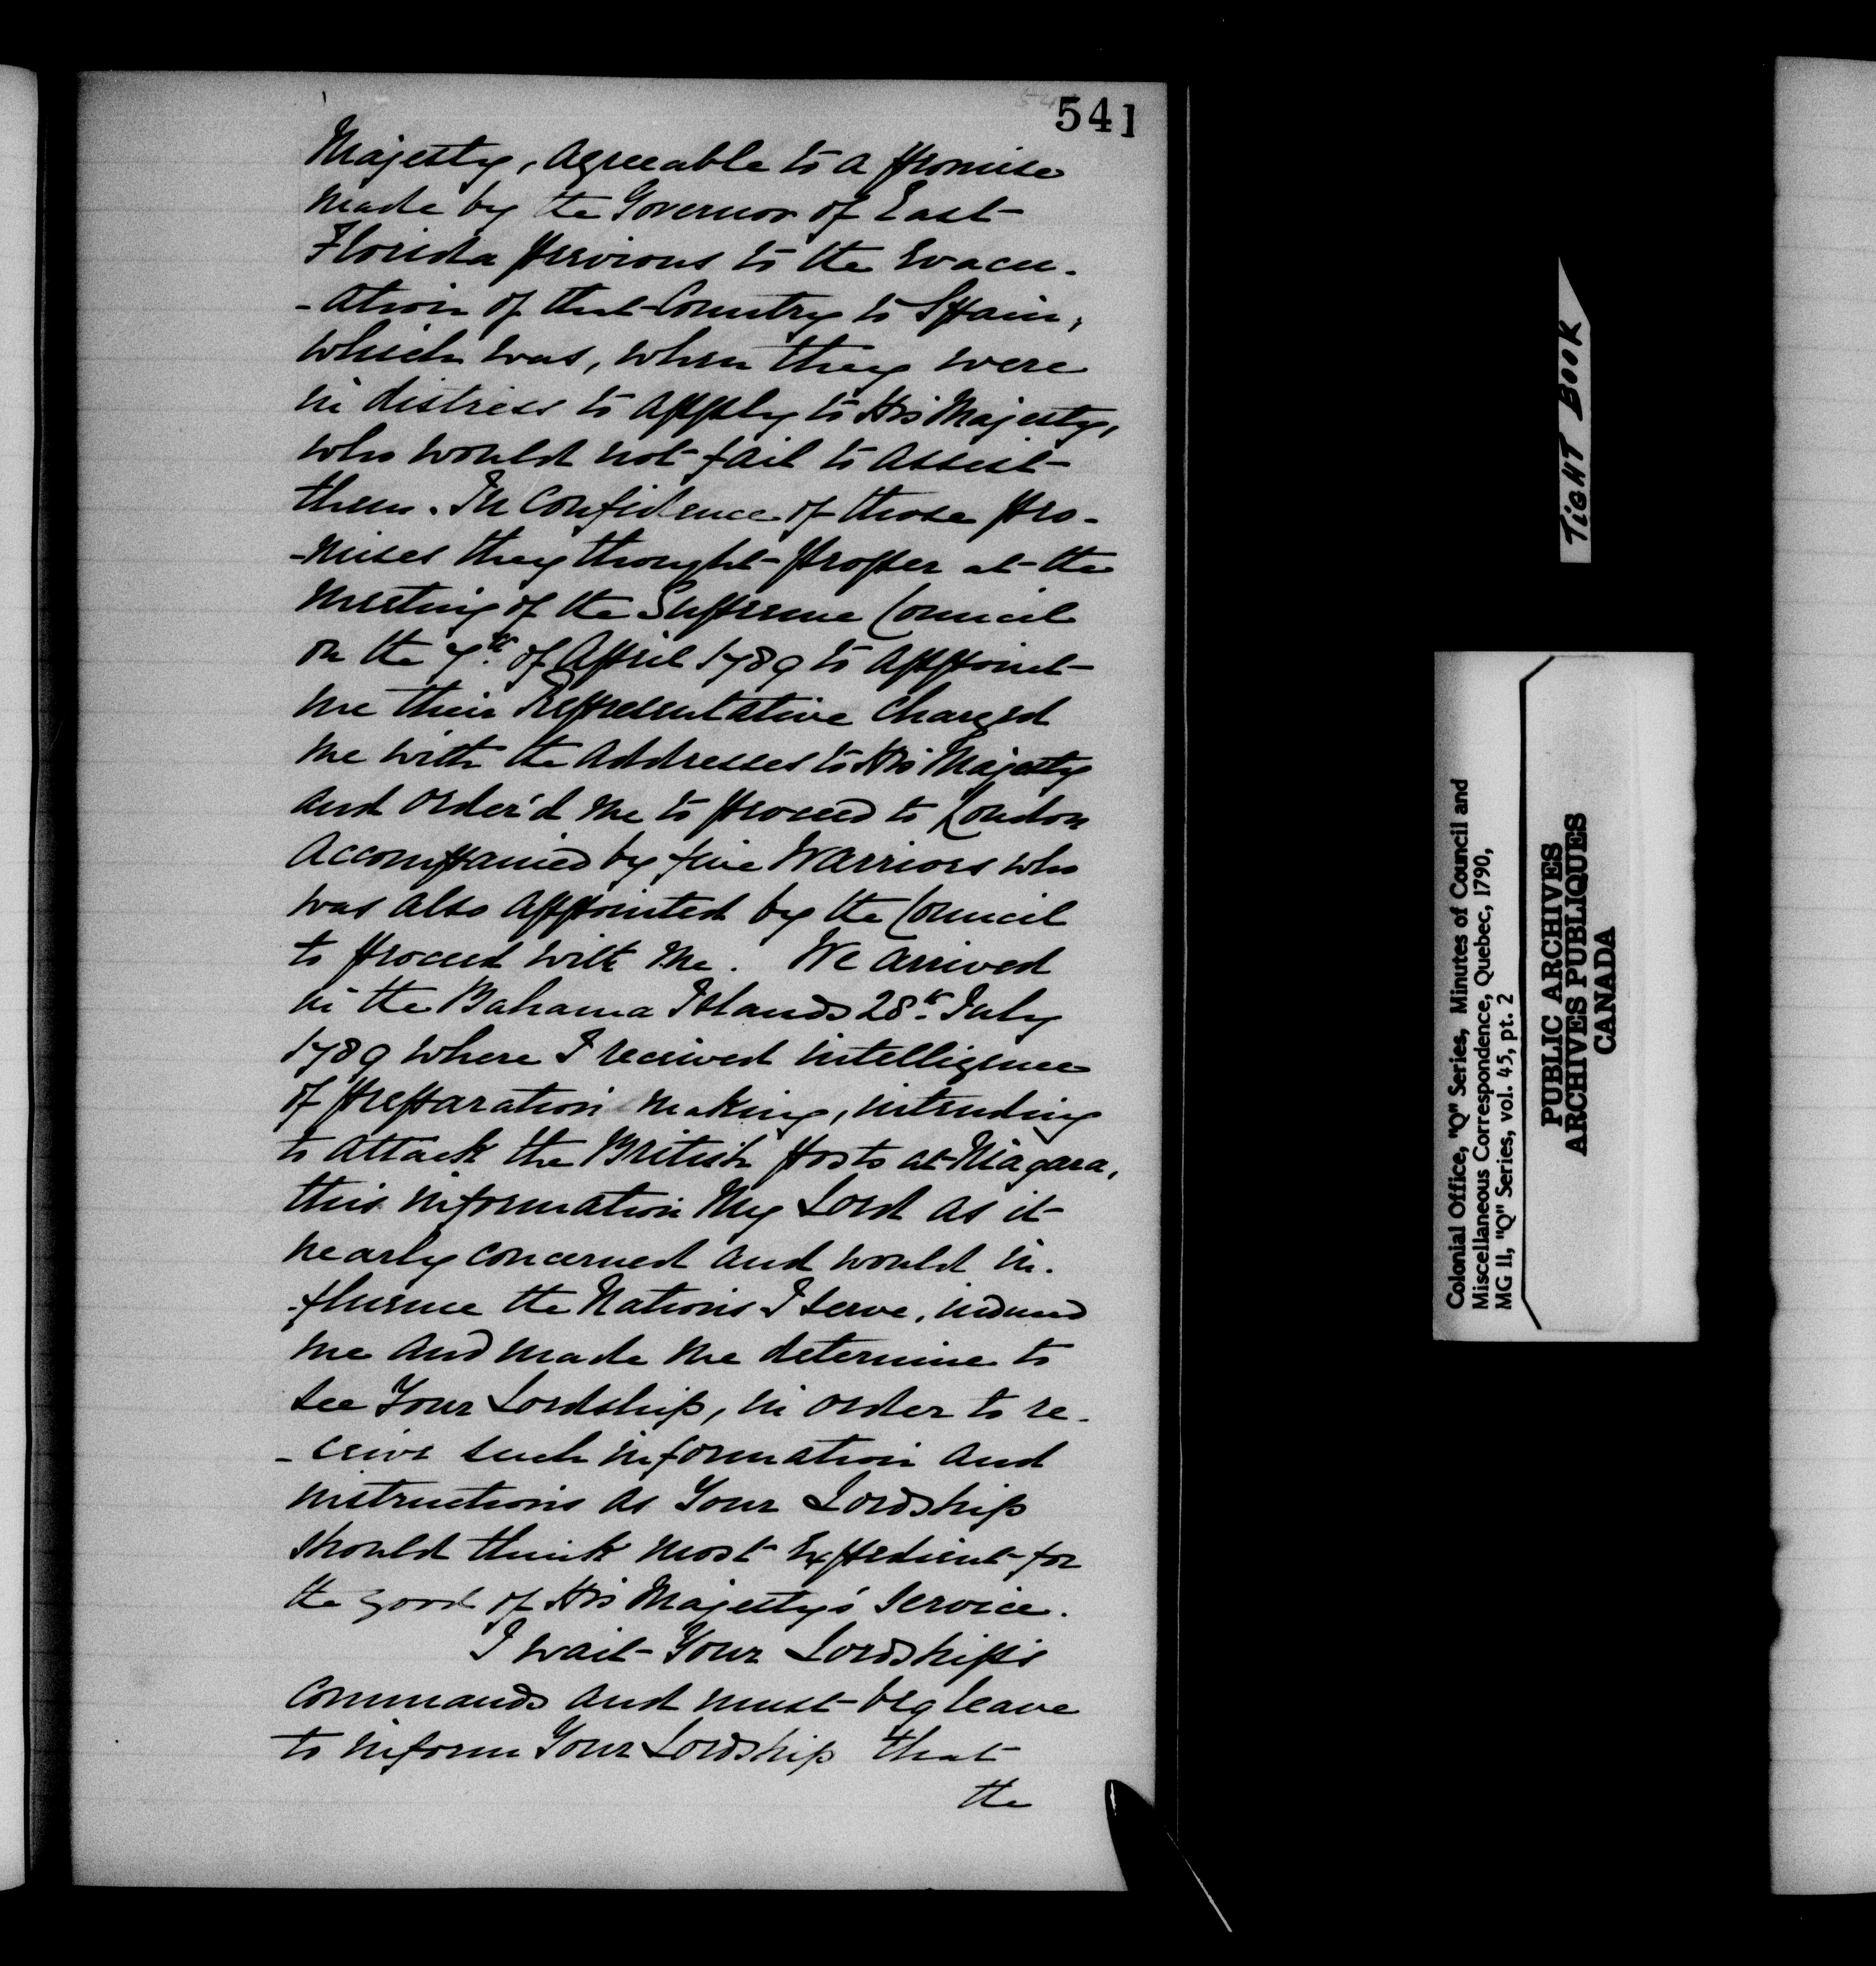 541
Majesty, agreeable to a promise
made by the Governor of East
Florida previous to the Evacu-
-ation of that Country to Spain,
which was, when they were
in distress to apply to His Majesty,
who would not fail to assist
them. In Confidence of those pro-
-mises they thought proper at the
meeting of the Supreme Council
on the 7th of April 1789 to appoint
me their Representative charged
me with the addresses to His Majesty
and order'd me to proceed to London
accompanied by five Warriors who
was also appointed by the Council
to proceed with me. We arrived
in the Bahama Islands 28th July
1789 where I received intelligence
of preparation making, intending
to attack the British posts at Niagara,
this information My Lord as it
nearly concerned and would in-
-fluence the Nations I serve, induced
me and made me determine to
see Your Lordship, in order to re-
-ceive such information and
instructions as Your Lordship
should think most Expedient for
the good of His Majesty's Service.
I wait Your Lordship's
commands and must beg leave
to inform Your Lordship that
the
TIGHT BOOK
Colonial Office, "Q" Series, Minutes of Council and
Miscellaneous Correspondence, Quebec, 1790,
MG 11, "Q" Series, vol. 45, pt. 2
PUBLIC ARCHIVES
ARCHIVES PUBLIQUES
CANADA